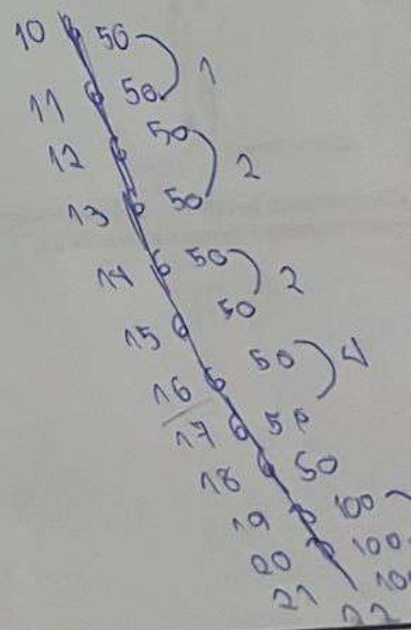 10 50
11 50 1
12 50
13 50 2
14 50
15 50 2
16 50 4
17 50
18 50
19 100
20 100
21 10
22